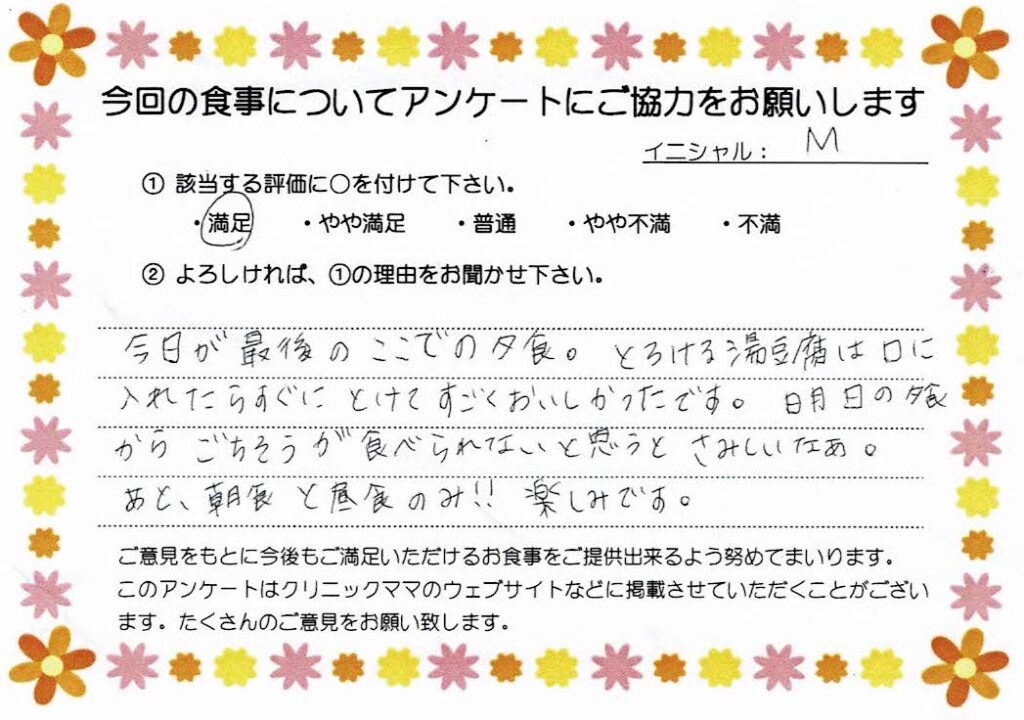 今回の食事についてアンケートにご協力をお願いします
イニシャル： M
① 該当する評価に○を付けて下さい。
・満足 ・やや満足 ・普通 ・やや不満 ・不満
② よろしければ、①の理由をお聞かせ下さい。
今日が最後のここでの夕食。とろける湯豆腐は口に
入れたらすぐにとけてすごくおいしかったです。明日の夕食
からごちそうが食べられないと思うとさみしいなぁ。
あと、朝食と昼食のみ!! 楽しみです。
ご意見をもとに今後もご満足いただけるお食事をご提供出来るよう努めてまいります。
このアンケートはクリニックママのウェブサイトなどに掲載させていただくことがござい
ます。たくさんのご意見をお願い致します。